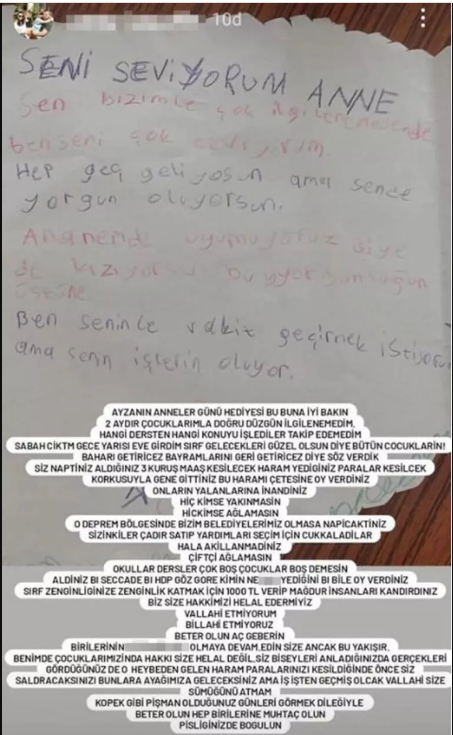 10d
SENİ SEVİYORUM ANNE
Sen bizimle çok ilgilenemesende
ben seni çok
Hep geç geliyosun ama sende
yorgun oluyorsun.
Ananende uyumuyoruz diye
de kızıyorsun bu yorgunluğun
üstüne
Ben seninle vakit geçirmek istiyorum
ama senn işlerin oluyor.
AYZANIN ANNELER GÜNÜ HEDİYESİ BU BUNA İYİ BAKIN
2 AYDIR ÇOCUKLARIMLA DOĞRU DÜZGÜN İLGİLENEMEDİM,
HANGİ DERSTEN HANGİ KONUYU İŞLEDİLER TAKİP EDEMEDİM
SABAH CIKTM GECE YARISI EVE GİRDİM SIRF GELECEKLERİ GÜZEL OLSUN DİYE BÜTÜN COCUKLARIN!
BAHARI GETİRİCEZ BAYRAMLARINI GERİ GETİRİCEZ DİYE SÖZ VERDİK
SİZ NAPTİNİZ ALDIĞINIZ 3 KURUŞ MAAŞ KESİLECEK HARAM YEDİGİNİZ PARALAR KESİLCEK
KORKUSUYLA GENE GİTTİNİZ BU HARAMİ ÇETESİNE OY VERDİNİZ
ONLARIN YALANLARINA İNANDİNİZ
HİÇ KİMSE YAKINMASIN
HİCKİMSE AĞLAMASIN
O DEPREM BÖLGESİNDE BİZİM BELEDİYELERİMİZ OLMASA NAPİCAKTİNİZ
SİZİNKİLER ÇADIR SATIP YARDIMLARI SEÇİM İÇİN CUKKALADİLAR
HALA AKILLANMADİNİZ
ÇİFTÇİ AĞLAMASIN
OKULLAR DERSLER ÇOK BOŞ ÇOCUKLAR BOŞ DEMESİN
ALDİNİZ Bİ SECCADE Bİ HDP GÖZ GORE KİMİN NE YEDİĞİNİ Bİ BİLE OY VERDİNİZ
SIRF ZENGİNLİGİNİZE ZENGİNLİK KATMAK İÇİN 1000 TL VERİP MAĞDUR İNSANLARI KANDIRDINIZ
BİZ SİZE HAKKIMİZİ HELAL EDERMİYİZ
VALLAHİ ETMİYORUM
BİLLAHİ ETMİYORUZ
BETER OLUN AÇ GEBERİN
BİRİLERİNİN OLMAYA DEVAM.EDİN SİZE ANCAK BU YAKIŞIR.
BENİMDE ÇOCUKLARIMIZINDA HAKKI SİZE HELAL DEĞİL.SİZ BİSEYLERİ ANLADIĞINIZDA GERÇEKLERİ
GÖRDÜĞÜNÜZ DE O HEYBEDEN GELEN HARAM PARALARINIZI KESİLDİĞİNDE ÖNCE SİZ
SALDRACAKSINIZI BUNLARA AYAĞIMIZA GELECEKSİNİZ AMA İŞ İŞTEN GEÇMİŞ OLCAK VALLAHİ SİZE
SÜMÜĞÜNÜ ATMAM
KOPEK GİBİ PİŞMAN OLDUĞUNUZ GÜNLERİ GÖRMEK DİLEĞİYLE
BETER OLUN HEP BİRİLERİNE MUHTAÇ OLUN
PİSLİGİNİZDE BOGULUN